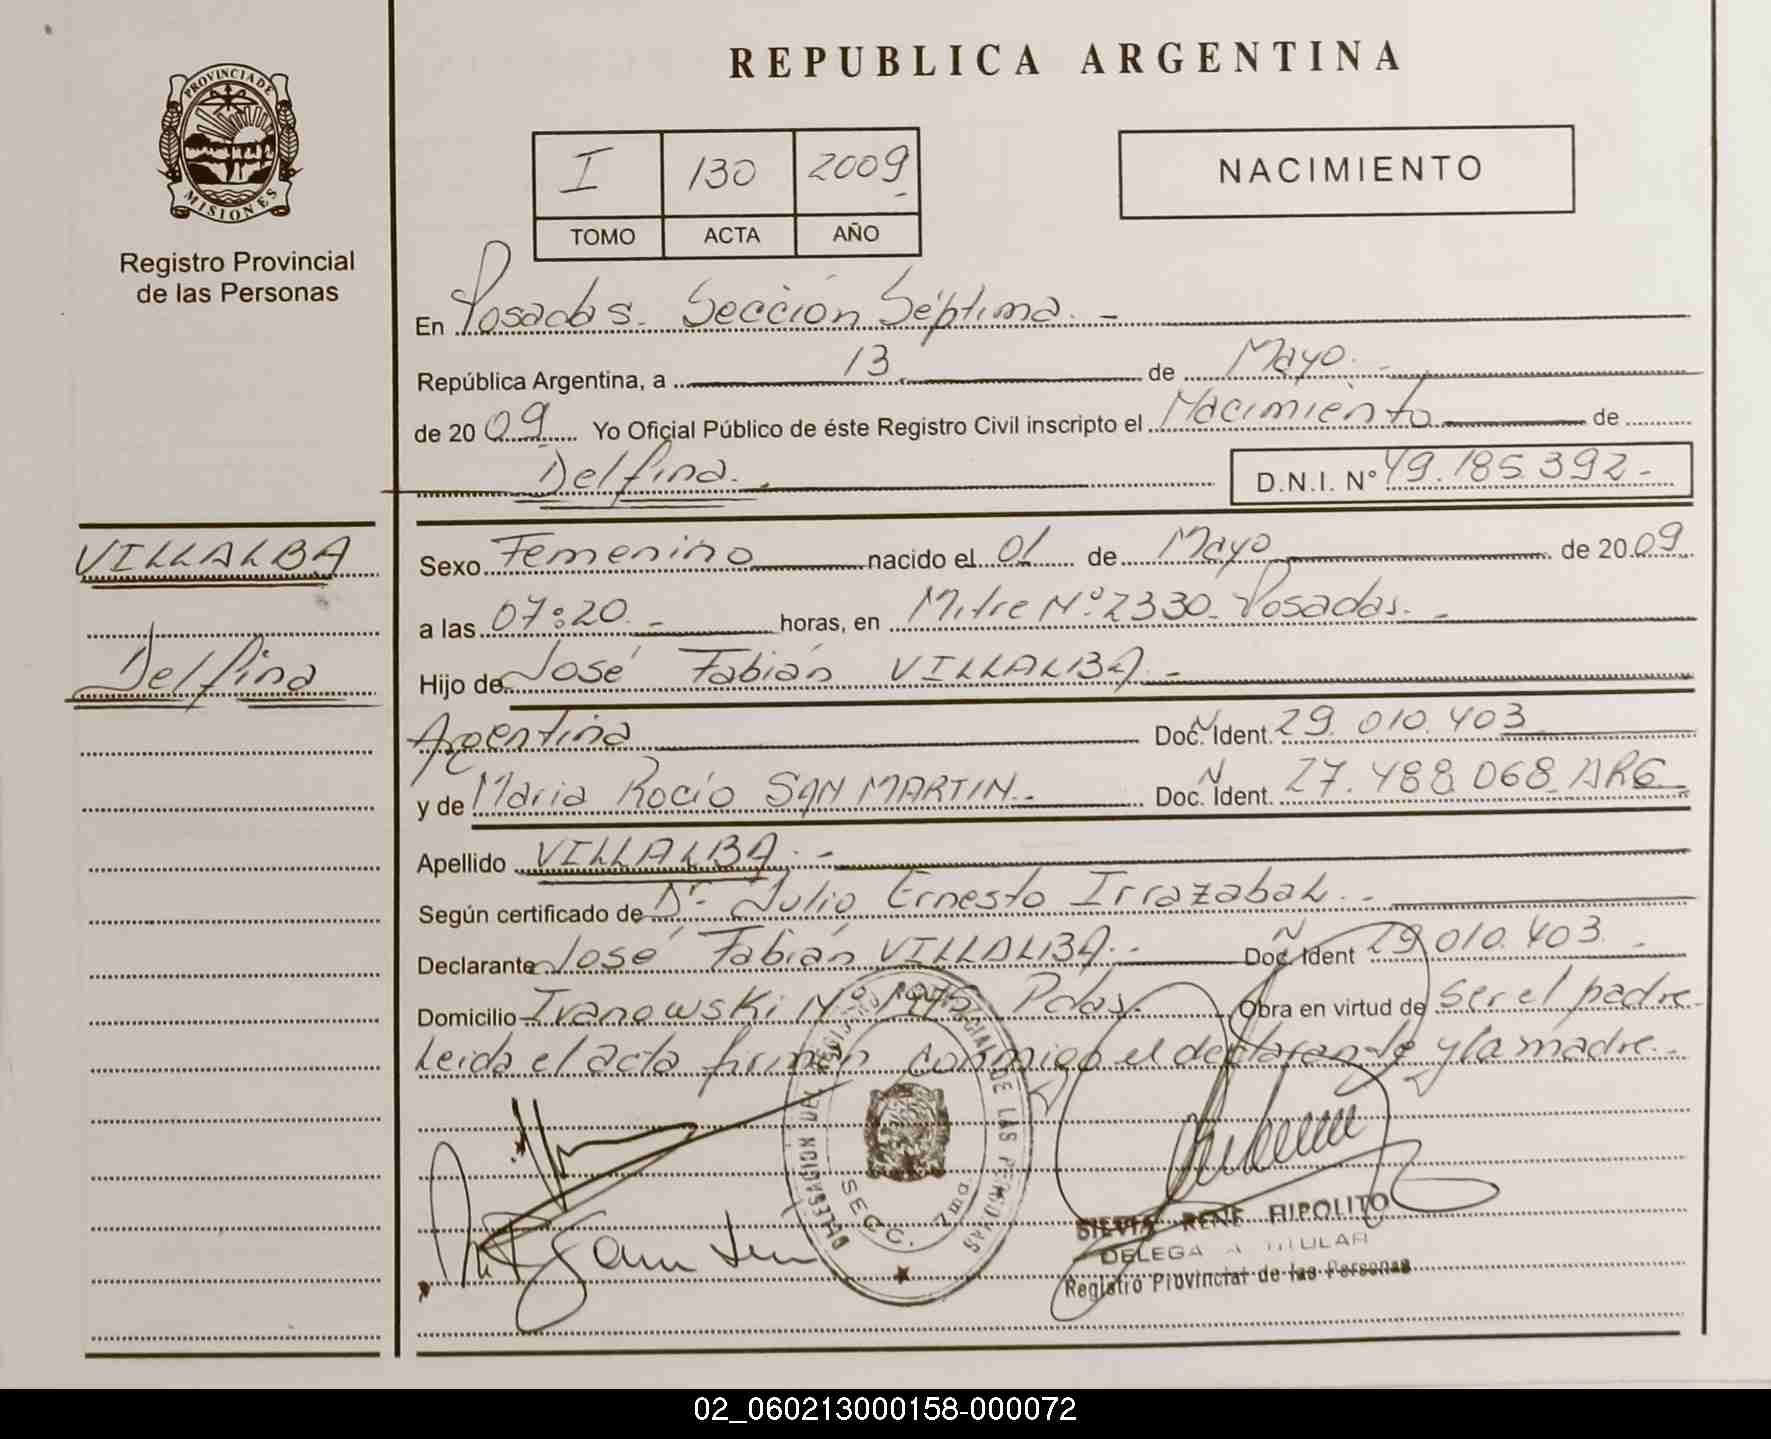 REPUBLICA ARGENTINA
PROVINCIA DE
MISIONES
Registro Provincial
de las Personas
I 130 2009
TOMO ACTA AÑO
NACIMIENTO
En Posadas. Sección Séptima. -
República Argentina, a 13 de Mayo. -
de 2009 Yo Oficial Público de éste Registro Civil inscripto el Nacimiento de
Delfina. D.N.I. Nº 49.185.392-
VILLALBA
Delfina
Sexo Femenino nacido el 01 de Mayo de 2009
a las 07:20. - horas, en Mitre Nº 2330- Posadas. -
Hijo de José Fabián VILLALBA -
Argentina Doc. Ident. 29.010.403
y de María Rocío SAN MARTIN.- Doc. Ident. 27.488.068 ARG
Apellido VILLALBA. -
Según certificado de Dr. Julio Ernesto Irrazabal. -
Declarante José Fabián VILLALBA.- Doc. Ident 29.010.403. -
Domicilio Ivanowski Nº Pdas. Obra en virtud de ser el padre
Leida el acta firman conmigo el declarante y la madre. -
DELEGACION DEL REGISTRO PROVINCIAL DE LAS PERSONAS
SECC. 7ma.
SILVIA RENE HIPOLITO
DELEGADA TITULAR
Registro Provincial de las Personas
02_060213000158-000072